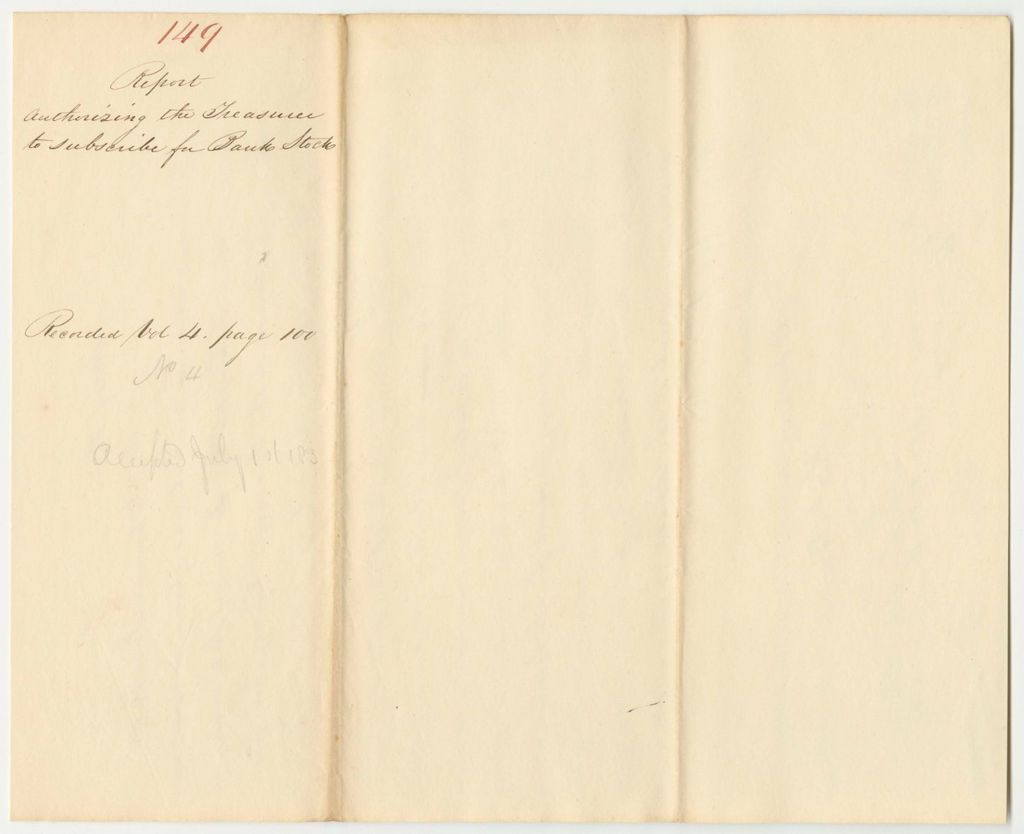 149
Report
authorizing the Treasurer
to subscribe for Bank Stock
Recorded Vol 4. page 100
No 4
Accepted July 1st 183